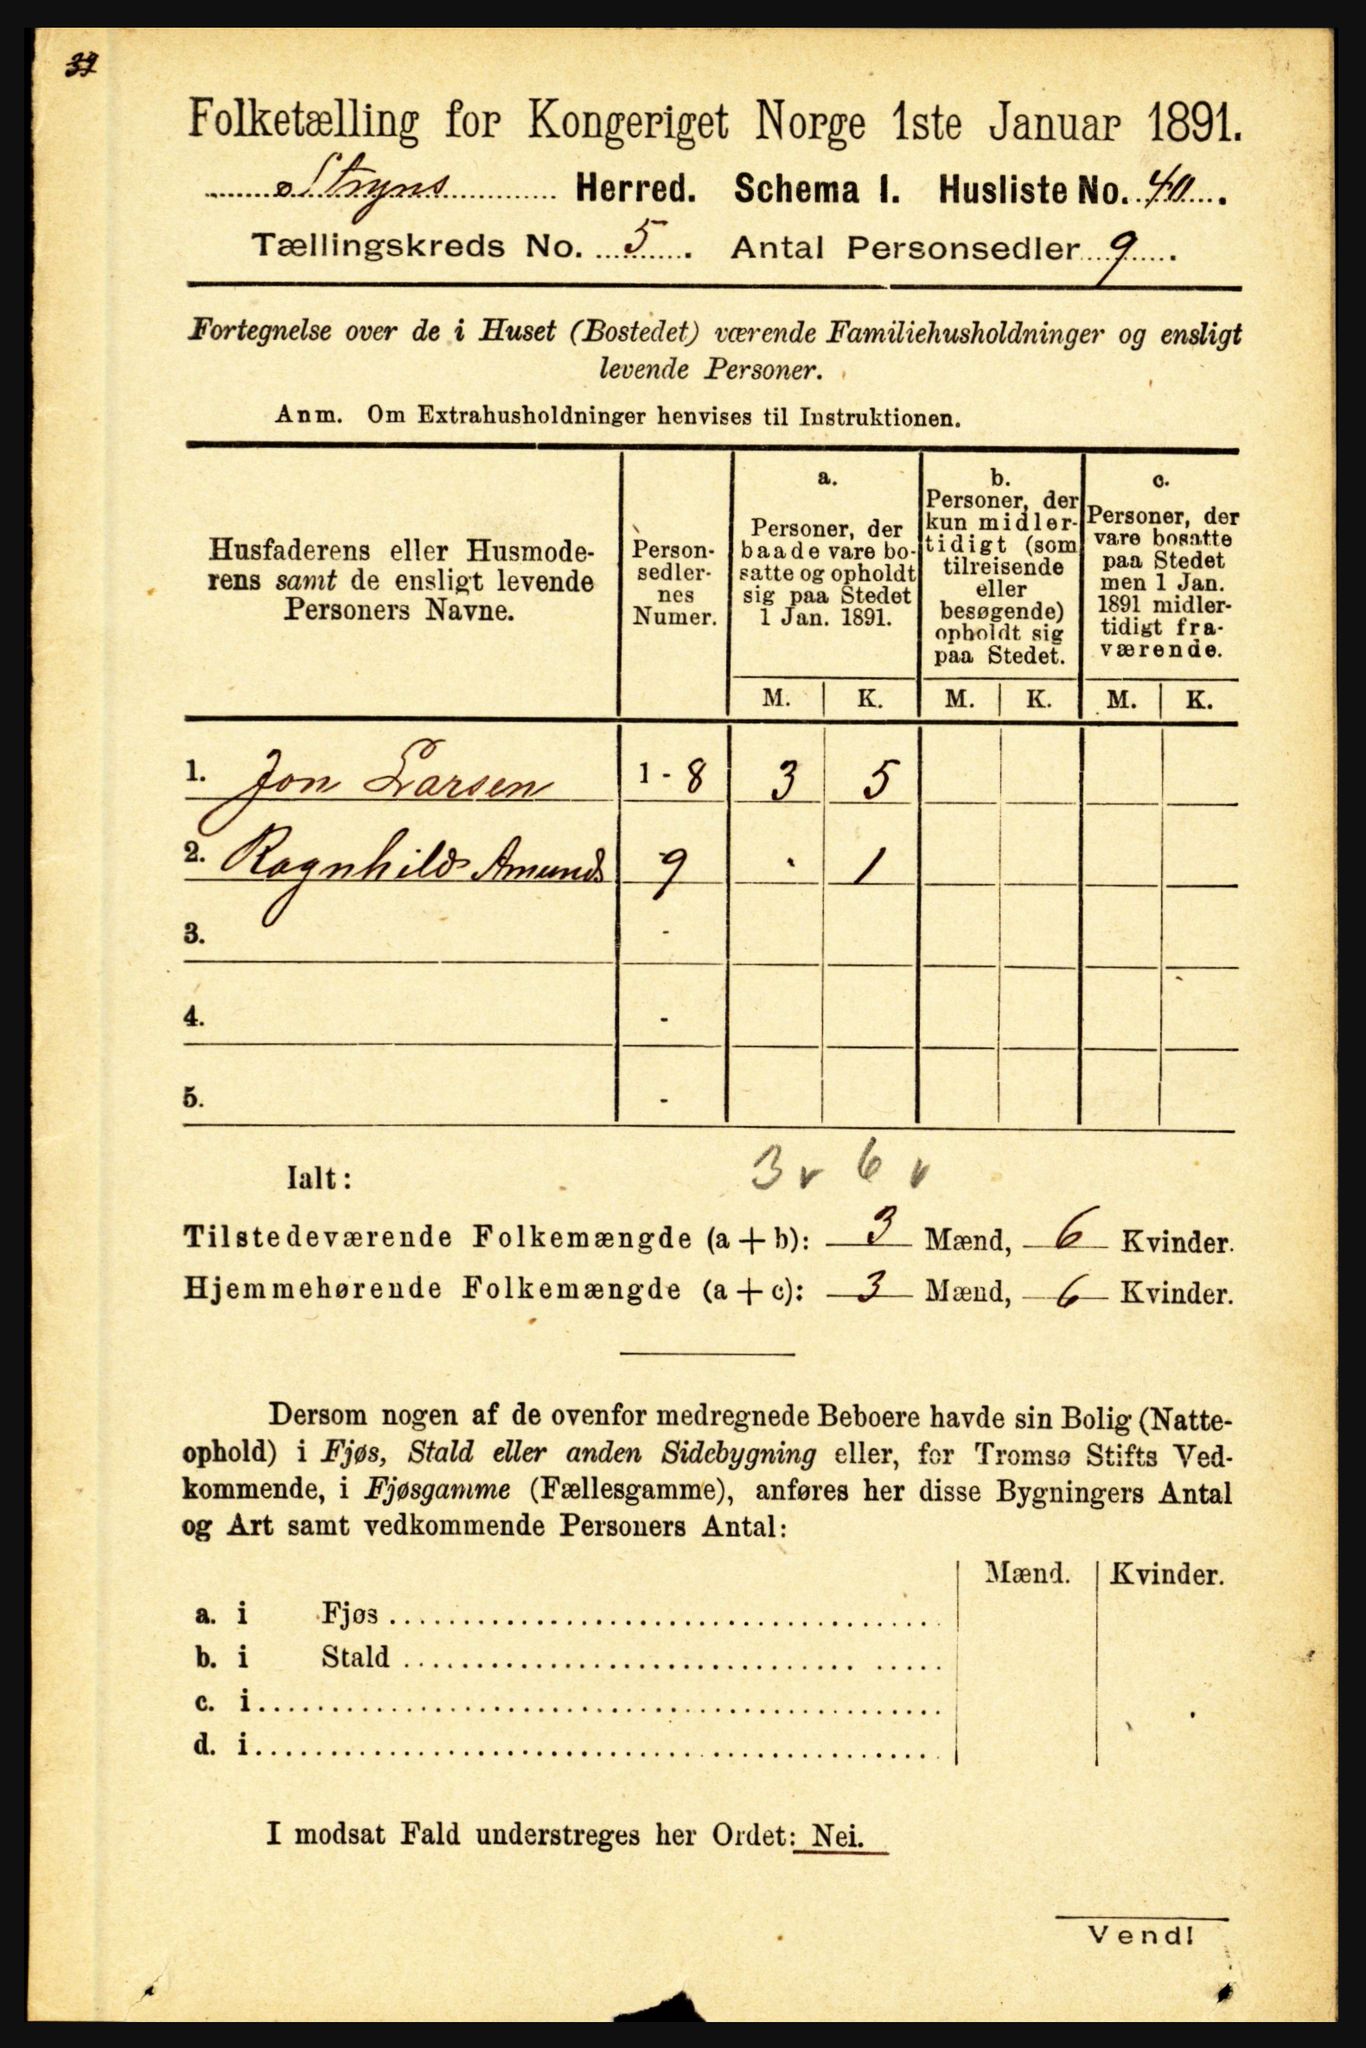 Folketælling for Kongeriget Norge 1ste Januar 1891.
Stryns Herred. Schema 1. Husliste No. 40.
Tællingskreds No. 5. Antal Personsedler 9.
Fortegnelse over de i Huset (Bostedet) værende Familiehusholdninger og ensligt
levende Personer.
Anm. Om Extrahusholdninger henvises til Instruktionen.
Husfaderens eller Husmode-
rens samt de ensligt levende
Personers Navne.
Person-
sedler-
nes
Numer.
a.
Personer, der
baade vare bo-
satte og opholdt
sig paa Stedet
1 Jan. 1891.
b.
Personer, der
kun midler-
tidigt (som
tilreisende
eller
besøgende)
opholdt sig
paa Stedet.
c.
Personer, der
vare bosatte
paa Stedet
men 1 Jan.
1891 midler-
tidigt fra-
værende.
M. K. M. K. M. K.
1. Jon Larsen 1 - 8 3 5
2. Ragnhild Amunds - 9 . 1
3. -
4. -
5. -
3 v 6 v
Ialt:
Tilstedeværende Folkemængde (a + b): 3 Mænd, 6 Kvinder.
Hjemmehørende Folkemængde (a + c): 3 Mænd, 6 Kvinder.
Dersom nogen af de ovenfor medregnede Beboere havde sin Bolig (Natte-
ophold) i Fjøs, Stald eller anden Sidebygning eller, for Tromsø Stifts Ved-
kommende, i Fjøsgamme (Fællesgamme), anføres her disse Bygningers Antal
og Art samt vedkommende Personers Antal:
Mænd. Kvinder.
a. i Fjøs
b. i Stald
c. i
d. i
I modsat Fald understreges her Ordet: Nei.
Vend!